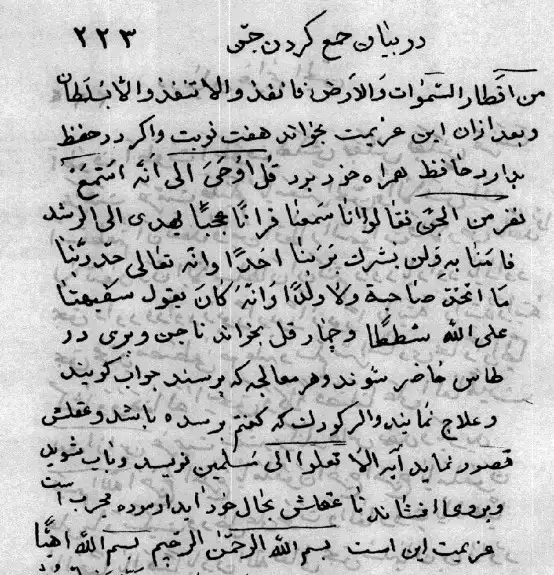 در بیان جمع کردن جن ۲۲۳
من اقطار السموات والارض فانفذوا لا تنفذوا الا بسلطان
و بعد ازان این عزیمت بخواند هفت نوبت و اکر در حفظ
بدارد حافظ همراه خود برد قل اوحی الی انه استمع
نفر من الجن فقالوا انا سمعنا قرانا عجبا یهدی الی الرشد
فامنا به ولن یشرک بربنا احدا وانه تعالی جد ربنا
ما اتخذ صاحبة ولا ولدا وانه کان یقول سفیهنا
علی الله شططا و چهار قل بخواند تا جن و پری در
طاس حاضر شوند و هر معالجه که پرسند جواب کویند
و علاج نمایند و اکر کودک که باشد و عقلش
قصور نماید آیه الا تعلوا الی مسلمین نویسد و باب شوید
و بروی افشاند تا عقلش بحال خود اید ازموده مجرب است
عزیمت این است بسم الله الرحمن الرحیم بسم الله اهیا